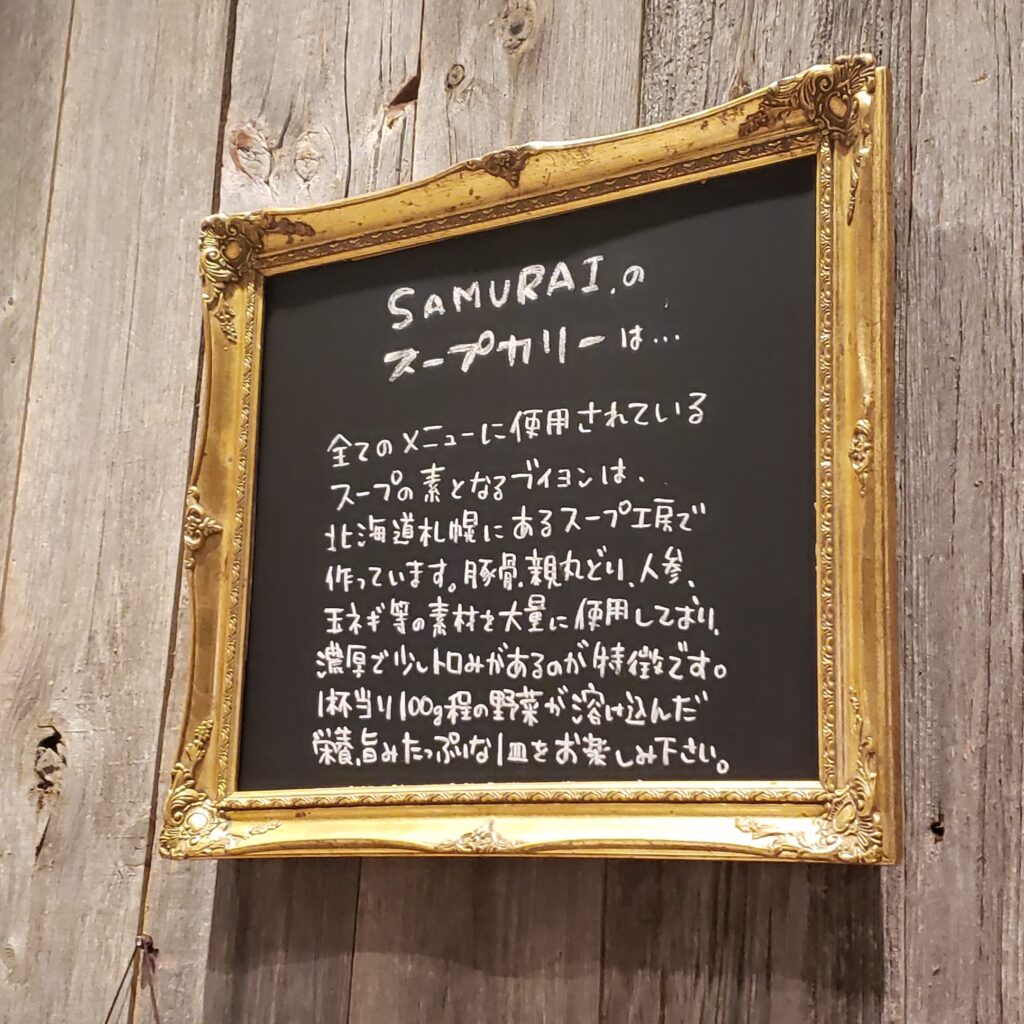 SAMURAI.の
スープカリーは…
全てのメニューに使用されている
スープの素となるブイヨンは、
北海道札幌にあるスープ工房で
作っています。豚骨、親丸どり、人参、
玉ネギ等の素材を大量に使用しており、
濃厚で少しトロみがあるのが特徴です。
1杯当り100g程の野菜が溶け込んだ
栄養、旨みたっぷりな1皿をお楽しみ下さい。